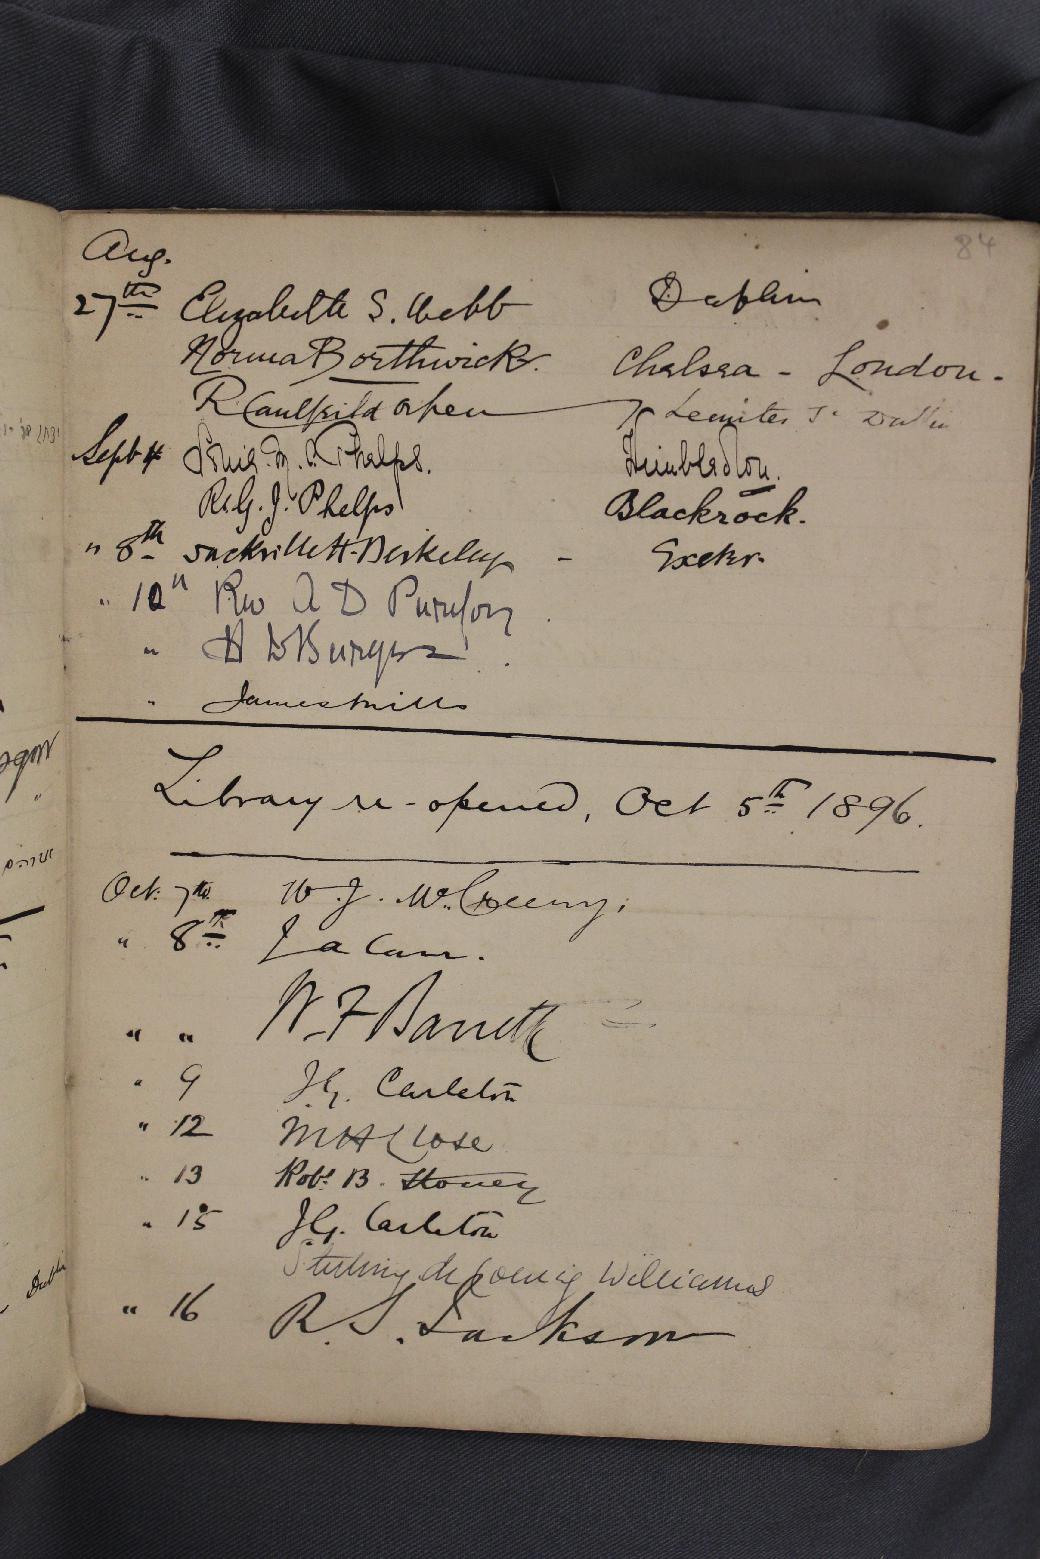 84
Aug.
27th Elizabeth S. Webb Dublin
Norma Borthwick. Chelsea - London -
R Caulfeild Orpen 7 Leinster St Dublin
Sept 4 Phelps. Wimbledon.
R. G. J. Phelps Blackrock.
" 8th Sackville H. Berkeley - Exeter.
" 10" Rev A D Purefoy
" H D Burgess
" James Mills
Library re-opened, Oct 5th 1896.
Oct. 7th W. J. McCreery;
" 8th J A Carr.
" " W. F Barrett
" 9 J. G. Carleton
" 12 M H Close
" 13 Robt B. Stoney
" 15 J. G. Carleton
Sterling de Courcy Williams
" 16 R. S. Jackson
Dublin